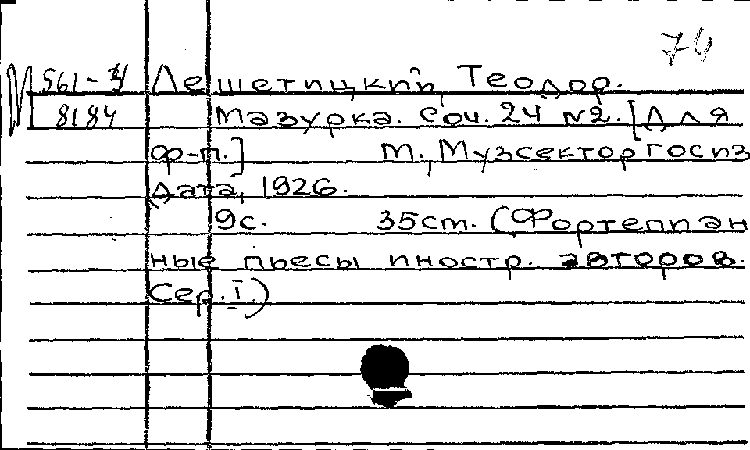 70
М 561-3 Лешетицкий, Теодор.
8184 Мазурка. Соч. 24 №2. [Для
ф-п.] М., Музсектор Госиз
дата, 1926.
9с. 35см. (Фортепиан
ные пьесы иностр. авторов.
Сер. I.)